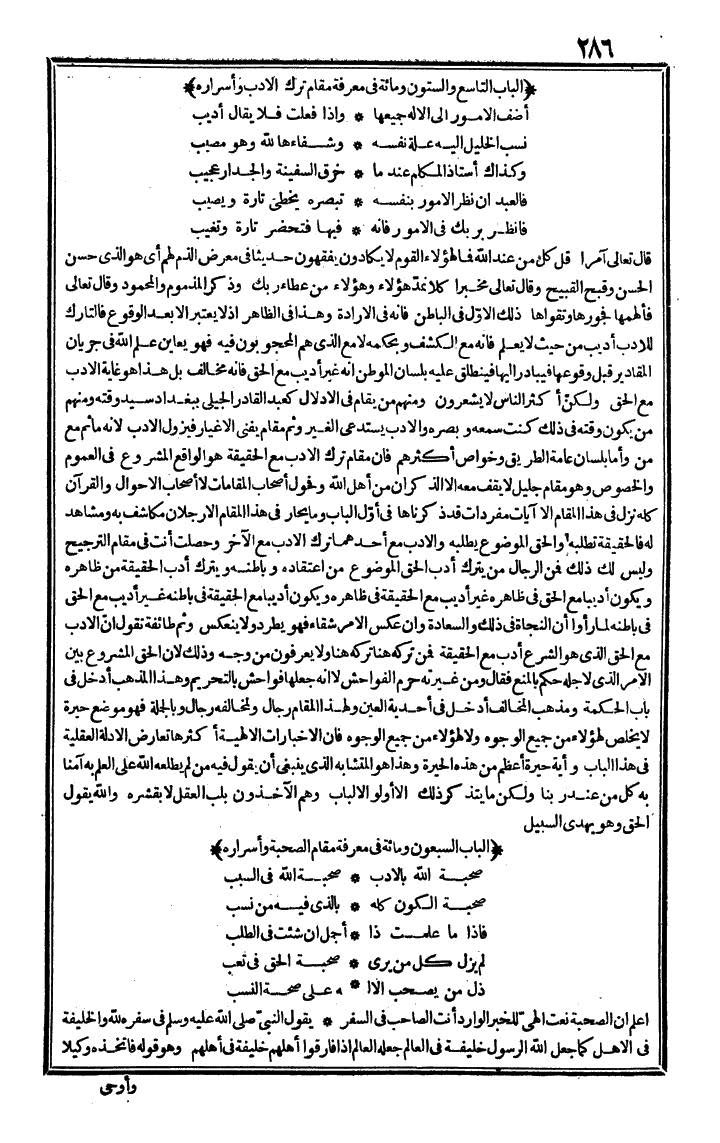 ٢٨٦
﴿الباب التاسع والستون ومائة فى معرفة مقام ترك الادب وأسراره﴾
أضف الامور الى الاله جميعها * واذا فعلت فلا يقال أديب
نسب الخليل اليه علة نفسه * وشفاءها لله وهو مصيب
وكذاك أستاذ المكلم عند ما * خرق السفينة والجدار عجيب
فالعبد ان نظر الامور بنفسه * تبصره يخطئ تارة ويصيب
فانظر بربك فى الامور فانه * فيها فتحضر تارة وتغيب
قال تعالى آمرا قل كل من عند الله فالهؤلاء القوم لا يكادون يفقهون حديثا فى معرض الذم لهم أى هو الذى حسن
الحسن وقبح القبيح وقال تعالى مخبرا كلا نمد هؤلاء وهؤلاء من عطاء ربك وذكر المذموم والمحمود وقال تعالى
فألهمها فجورها وتقواها ذلك الاول فى الباطن فانه فى الارادة وهذا فى الظاهر اذ لا يعتبر الا بعد الوقوع فالتارك
للادب أديب من حيث لا يعلم فانه مع الكشف وبحكمه لا مع الذى هم المحجوبون فيه فهو يعاين علم الله فى جريان
المقادير قبل وقوعها فيبادر اليها فينطاق عليه بلسان الموطن انه غير أديب مع الحق فانه مخالف بل هذا هو غاية الادب
مع الحق ولكن أكثر الناس لا يشعرون ومنهم من يقام فى الادلال كعبد القادر الجيلى ببغداد سيد وقته ومنهم
من يكون وقته فى ذلك كنت سمعه وبصره والادب يستدعى الغير وثم مقام يفنى الاغيار فيزول الادب لانه ما ثم مع
من وأما بلسان عامة الطريق وخواص أكثرهم فان مقام ترك الادب مع الحقيقة هو الواقع المشروع فى العموم
والخصوص وهو مقام جليل لا يقف معه الا الذكران من أهل الله وفحول أصحاب المقامات لا أصحاب الاحوال والقرآن
كله نزل فى هذا المقام الا آيات مفردات قد ذكرناها فى أول الباب وما يحار فى هذا المقام الا رجلان مكاشف به ومشاهد
له فالحقيقة تطلبه والحق الموضوع يطلبه والادب مع أحدهما ترك الادب مع الآخر وحصلت أنت فى مقام الترجيح
وليس لك ذلك فمن الرجال من يترك أدب الحق الموضوع من اعتقاده وباطنه ويترك أدب الحقيقة من ظاهره
ويكون أديبا مع الحق فى ظاهره غير أديب مع الحقيقة فى ظاهره ويكون أديبا مع الحقيقة فى باطنه غير أديب مع الحق
فى باطنه لما رأوا أن النجاة فى ذلك والسعادة وان عكس الامر شقاء فهو يطرد ولا ينعكس وثم طائفة تقول ان الادب
مع الحق الذى هو الشرع أدب مع الحقيقة فمن تركه هنا تركه هنا ولا يعرفون من وجه وذلك لان الحق المشروع بين
الامر الذى لاجله حكم بالمنع فقال ومن غيرته حرم الفواحش لا انه جعلها فواحش بالتحريم وهذا المذهب أدخل فى
باب الحكمة ومذهب المخالف أدخل فى أحدية العين ولهذا المقام رجال ولمخالفه رجال وبالجملة فهو موضع حيرة
لا يخلص لهؤلاء من جميع الوجوه ولا لهؤلاء من جميع الوجوه فان الاخبارات الالهية أكثرها تعارض الادلة العقلية
فى هذا الباب وأية حيرة أعظم من هذه الحيرة وهذا هو المتشابه الذى ينبغى أن يقول فيه من لم يطلعه الله على العلم به آمنا
به كل من عند ربنا ولكن ما يتذكر ذلك الا أولو الالباب وهم الآخذون بلب العقل لا بقشره والله يقول
الحق وهو يهدى السبيل
﴿الباب السبعون ومائة فى معرفة مقام الصحبة وأسراره﴾
صحبة الله بالادب * صحبة الله فى السبب
صحبة الكون كله * بالذى فيه من نسب
فاذا ما علمت ذا * أجل ان شئت فى الطلب
لم يزل كل من يرى * صحبة الحق فى تعب
ذل من يصحب الا * له على صحة النسب
اعلم ان الصحبة نعت الهىّ للخبر الوارد أنت الصاحب فى السفر * يقول النبىّ صلى الله عليه وسلم فى سفره لله والخليفة
فى الاهل كما جعل الله الرسول خليفة فى العالم جعله العالم اذا فارقوا أهلهم خليفة فى أهلهم وهو قوله فاتخذه وكيلا
وأوحى